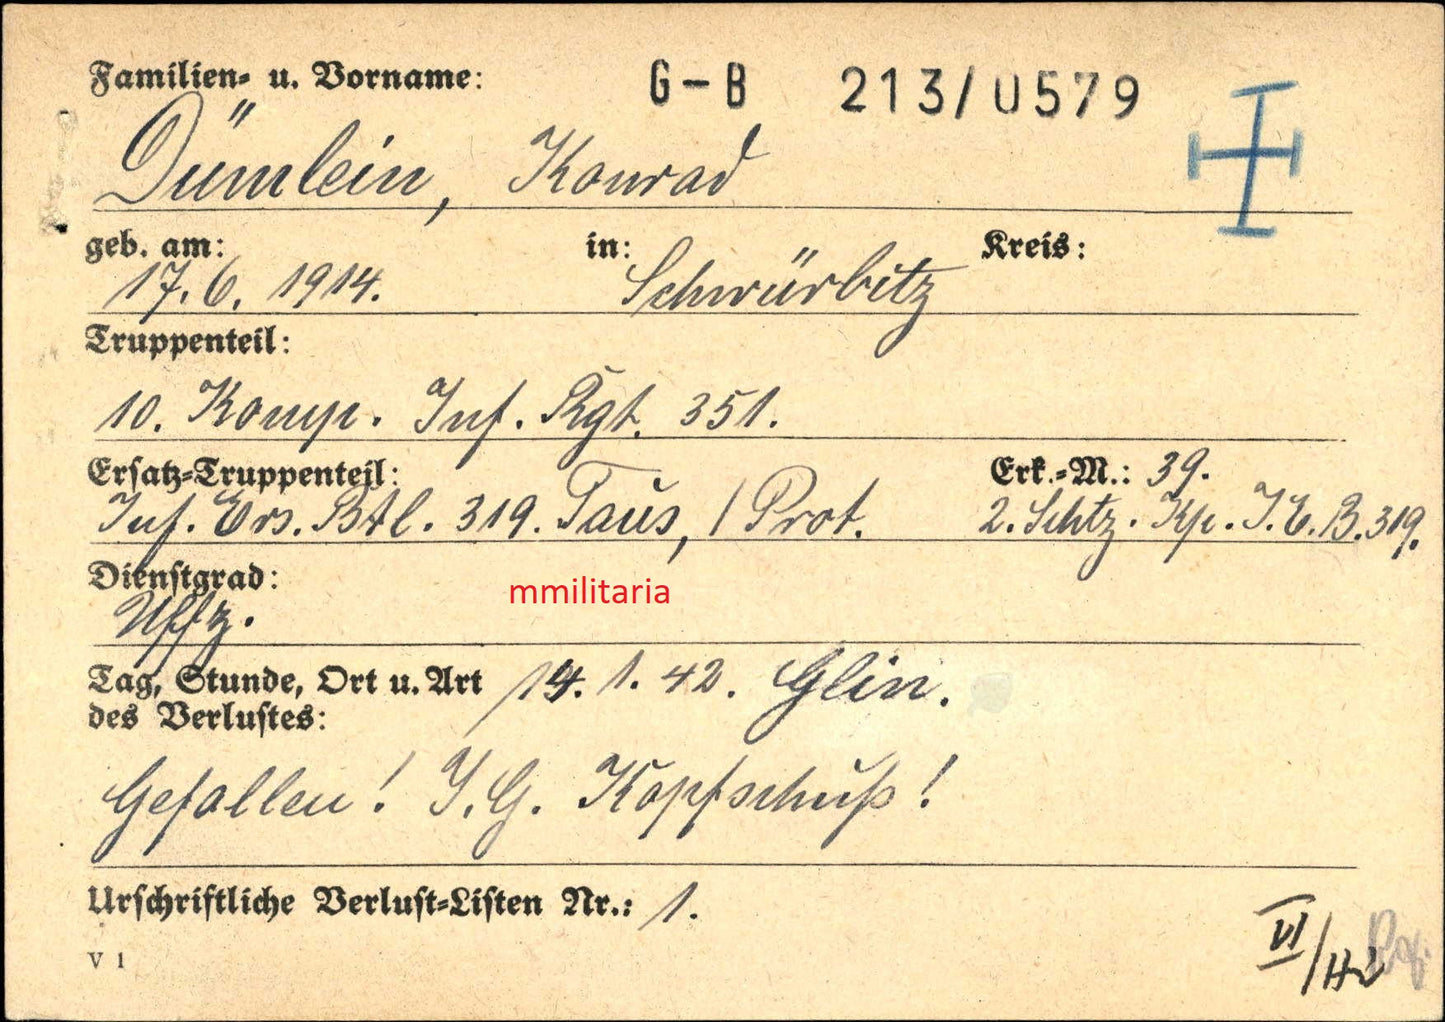 Familien- u. Vorname: G-B 213/0579
Dümlein, Konrad
geb. am: in: Kreis:
17.6.1914. Schwürbitz
Truppenteil:
10. Komp. Inf. Rgt. 351.
Ersatz-Truppenteil: Erk.-M.: 39.
Inf. Ers. Btl. 319. Taus, / Prot. 2. Schtz. Kp. I.E.B. 319.
Dienstgrad:
Uffz.
mmilitaria
Tag, Stunde, Ort u. Art 14. 1. 42. Glin.
des Verlustes:
Gefallen! I.G. Kopfschuß!
Urschriftliche Verlust-Listen Nr.: 1.
V 1
VI/